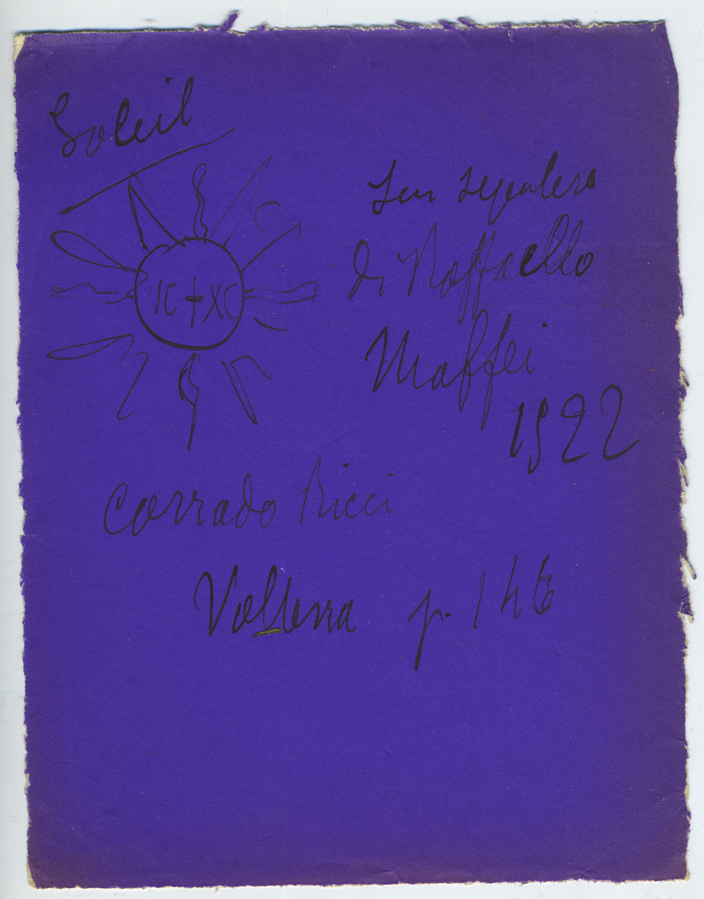 Soleil
IC + XC
sepulcro
di Raffaello
Maffei
1522
Corrado Ricci
Volterra p. 146